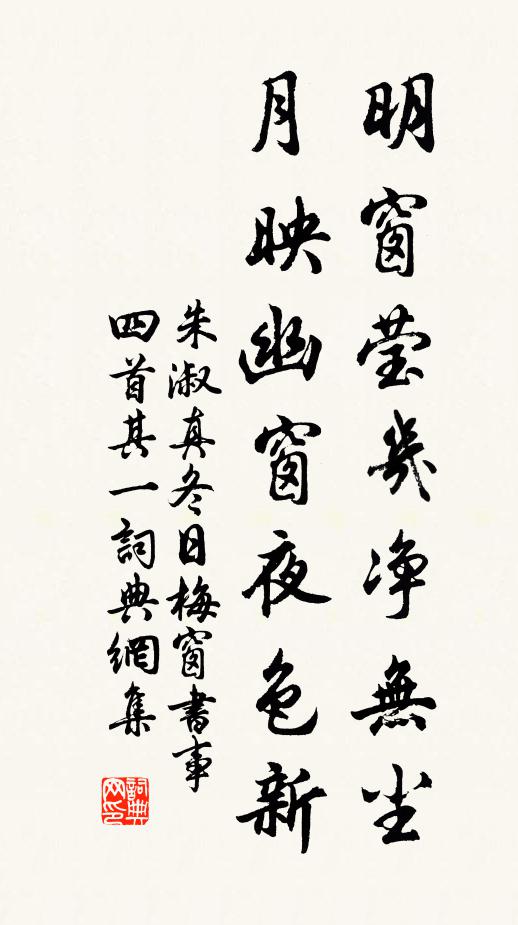 明窗莹几净無尘
月映幽窗夜色新
朱淑真冬日梅窗書事
四首其一詞典網集
詞典網印